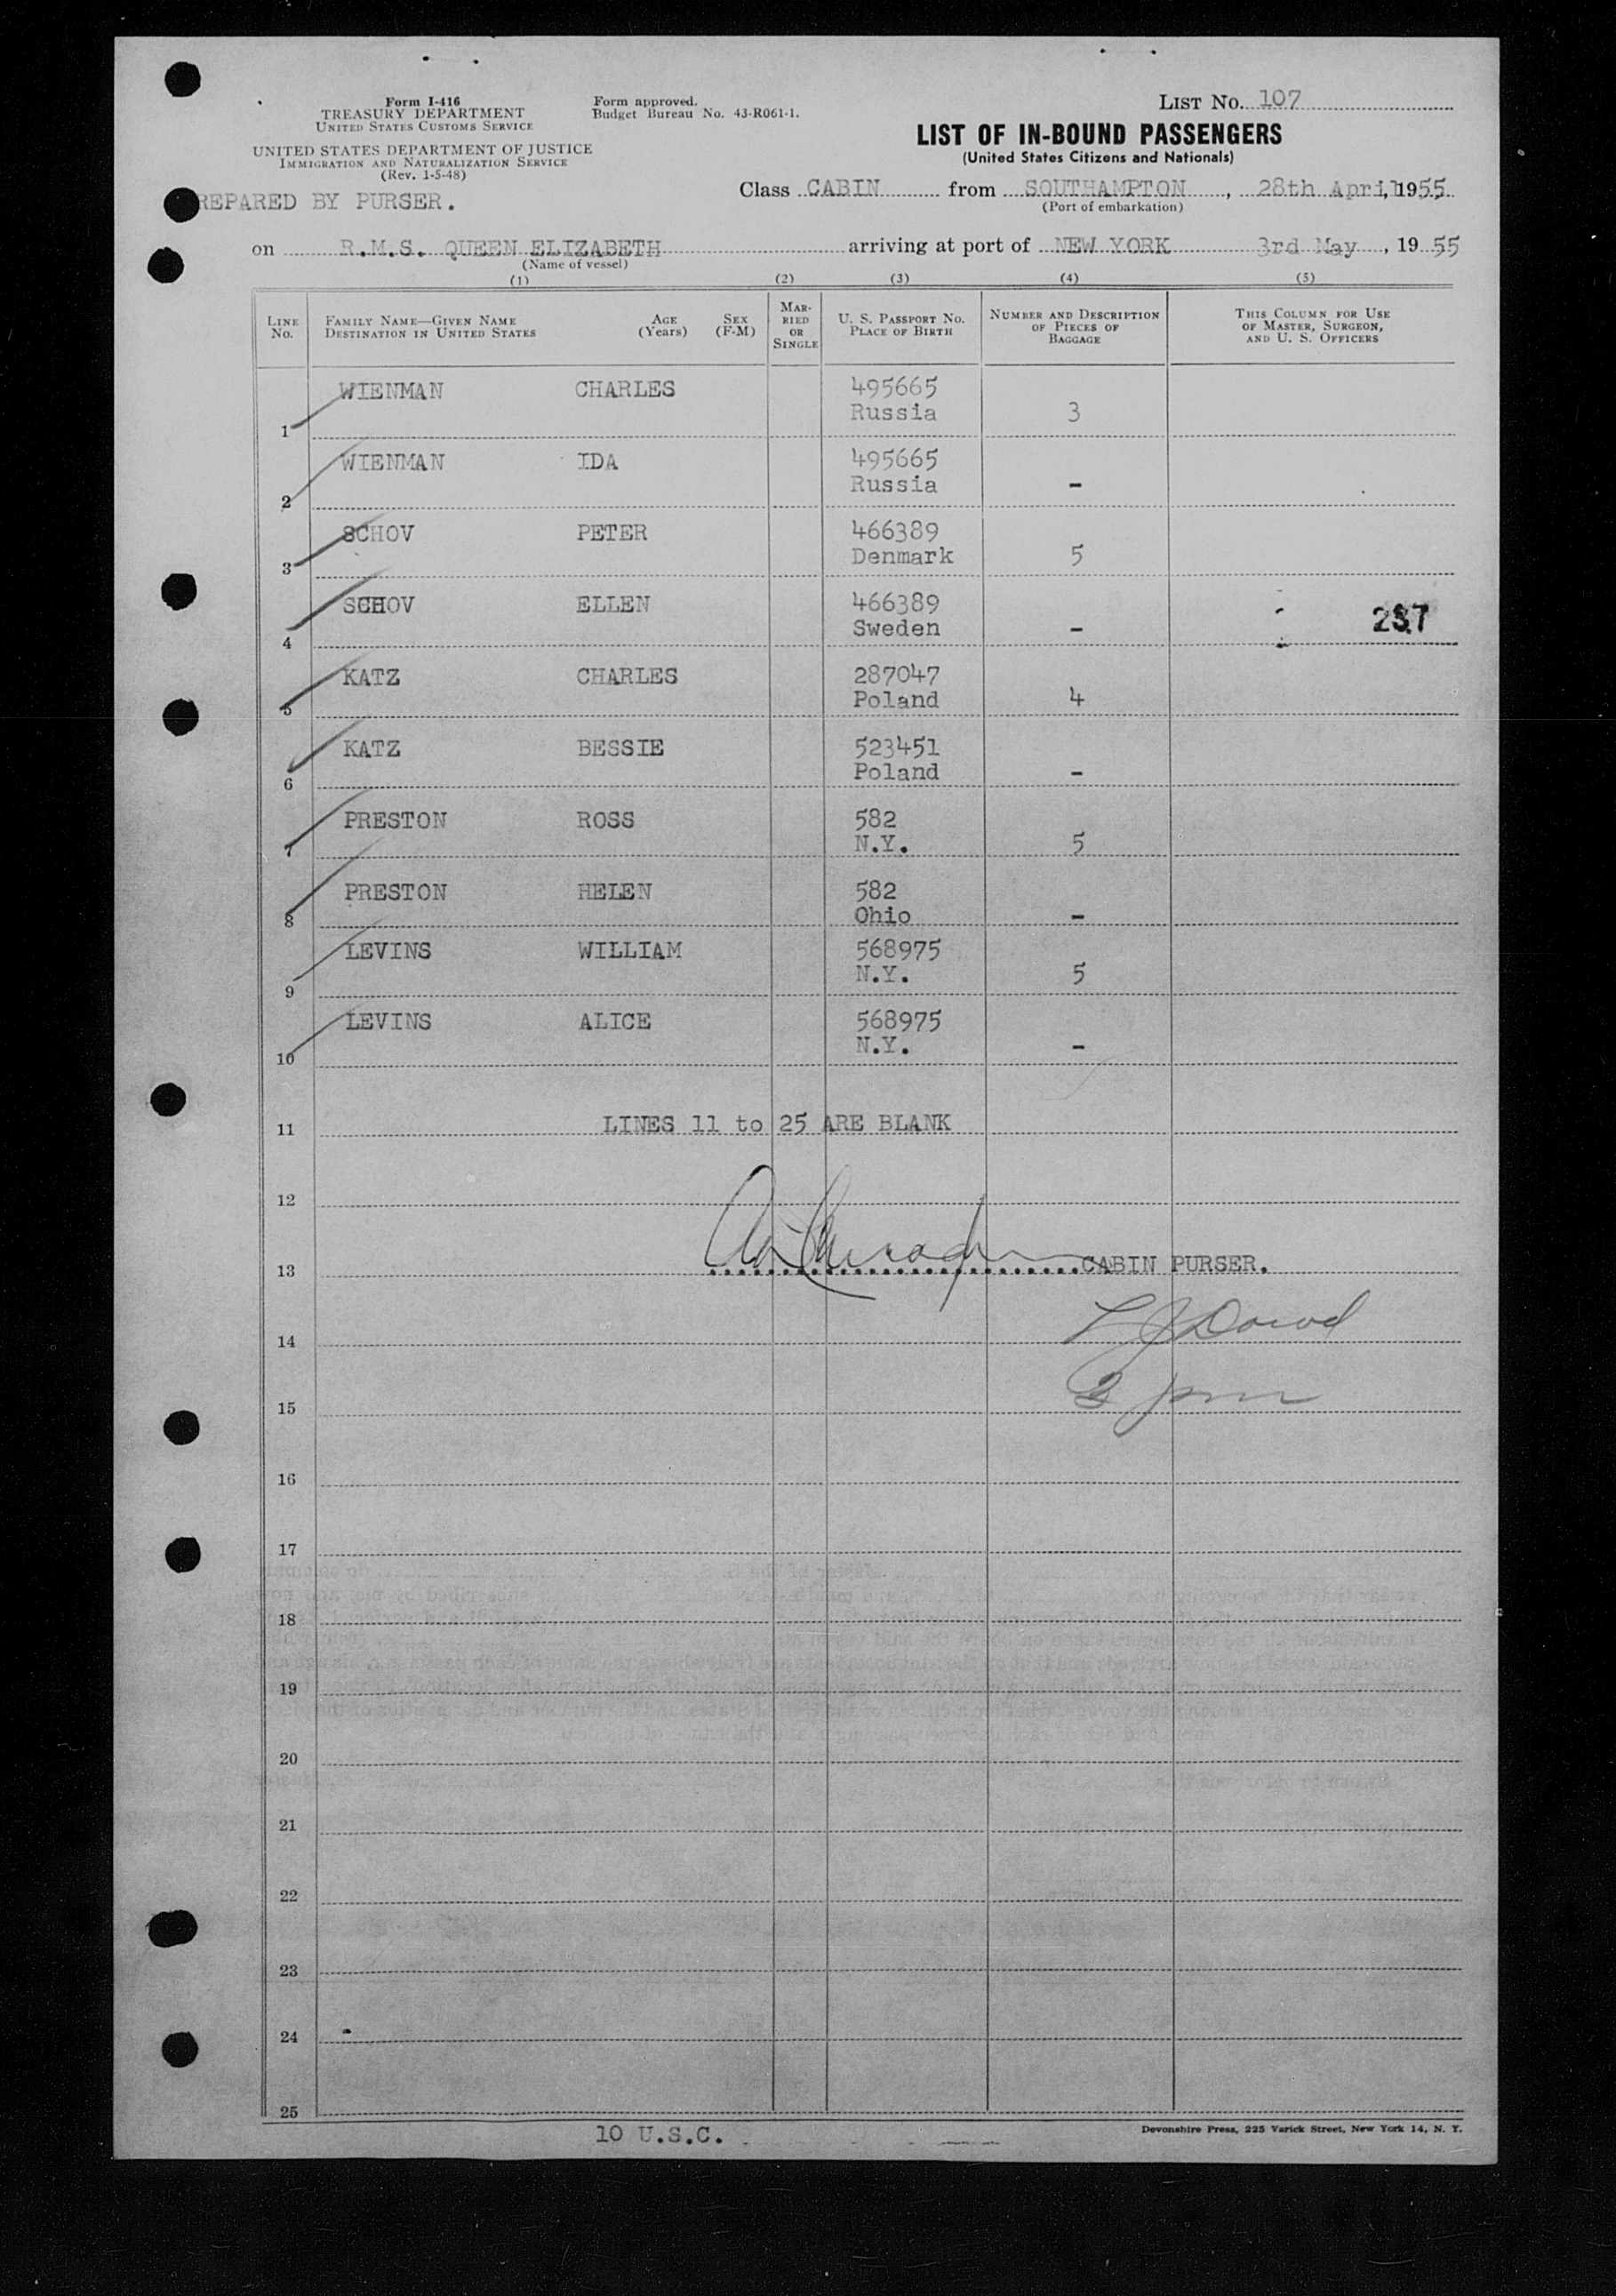 Form I-416
TREASURY DEPARTMENT
UNITED STATES CUSTOMS SERVICE
UNITED STATES DEPARTMENT OF JUSTICE
IMMIGRATION AND NATURALIZATION SERVICE
(Rev. 1-5-48)
REPARED BY PURSER.
Form approved.
Budget Bureau No. 43-R061-1.
LIST No. 107
LIST OF IN-BOUND PASSENGERS
(United States Citizens and Nationals)
Class CABIN from SOUTHAMPTON, 28th April, 1955
(Port of embarkation)
on R.M.S. QUEEN ELIZABETH arriving at port of NEW YORK 3rd May, 19 55
(Name of vessel)
(1) (2) (3) (4) (5)
LINE No. FAMILY NAME—GIVEN NAME DESTINATION IN UNITED STATES AGE (Years) SEX (F-M) MARRIED OR SINGLE U. S. PASSPORT NO. PLACE OF BIRTH NUMBER AND DESCRIPTION OF PIECES OF BAGGAGE THIS COLUMN FOR USE OF MASTER, SURGEON, AND U. S. OFFICERS
WIENMAN CHARLES 495665
1 Russia 3
WIENMAN IDA 495665
2 Russia -
SCHOV PETER 466389
3 Denmark 5
SCHOV ELLEN 466389
4 Sweden - 237
KATZ CHARLES 287047
5 Poland 4
KATZ BESSIE 523451
6 Poland -
PRESTON ROSS 582
7 N.Y. 5
PRESTON HELEN 582
8 Ohio -
LEVINS WILLIAM 568975
9 N.Y. 5
LEVINS ALICE 568975
10 N.Y. -
11 LINES 11 to 25 ARE BLANK
12
13 CABIN PURSER.
14
15 pm
16
17
18
19
20
21
22
23
24
25
10 U.S.C.
Devonshire Press, 225 Varick Street, New York 14, N. Y.